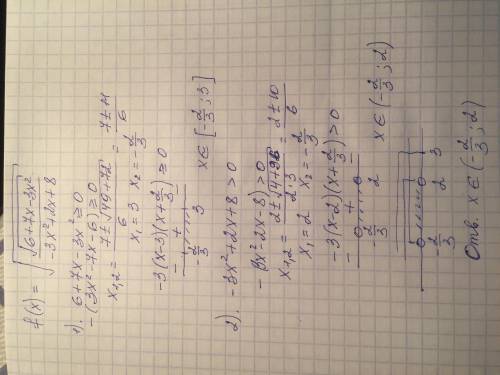 f(x) = √(√(6+7x-3x²) / (-3x²+2x+8))
1). 6+7x-3x² ≥ 0
-(3x²-7x-6) ≥ 0
x₁,₂ = (7±√(49+72))/6 = (7±11)/6
x₁ = 3 x₂ = -2/3
-3(x-3)(x+2/3) ≥ 0
- + -
-2/3 3
x∈[-2/3; 3]
2). -3x²+2x+8 > 0
-(3x²-2x-8) > 0
x₁,₂ = (2±√(4+96))/(2·3) = (2±10)/6
x₁ = 2 x₂ = -2/3
-3(x-2)(x+2/3) > 0
- + -
-2/3 2
x∈(-2/3; 2)
-2/3 2 3
Отв. x∈(-2/3; 2)